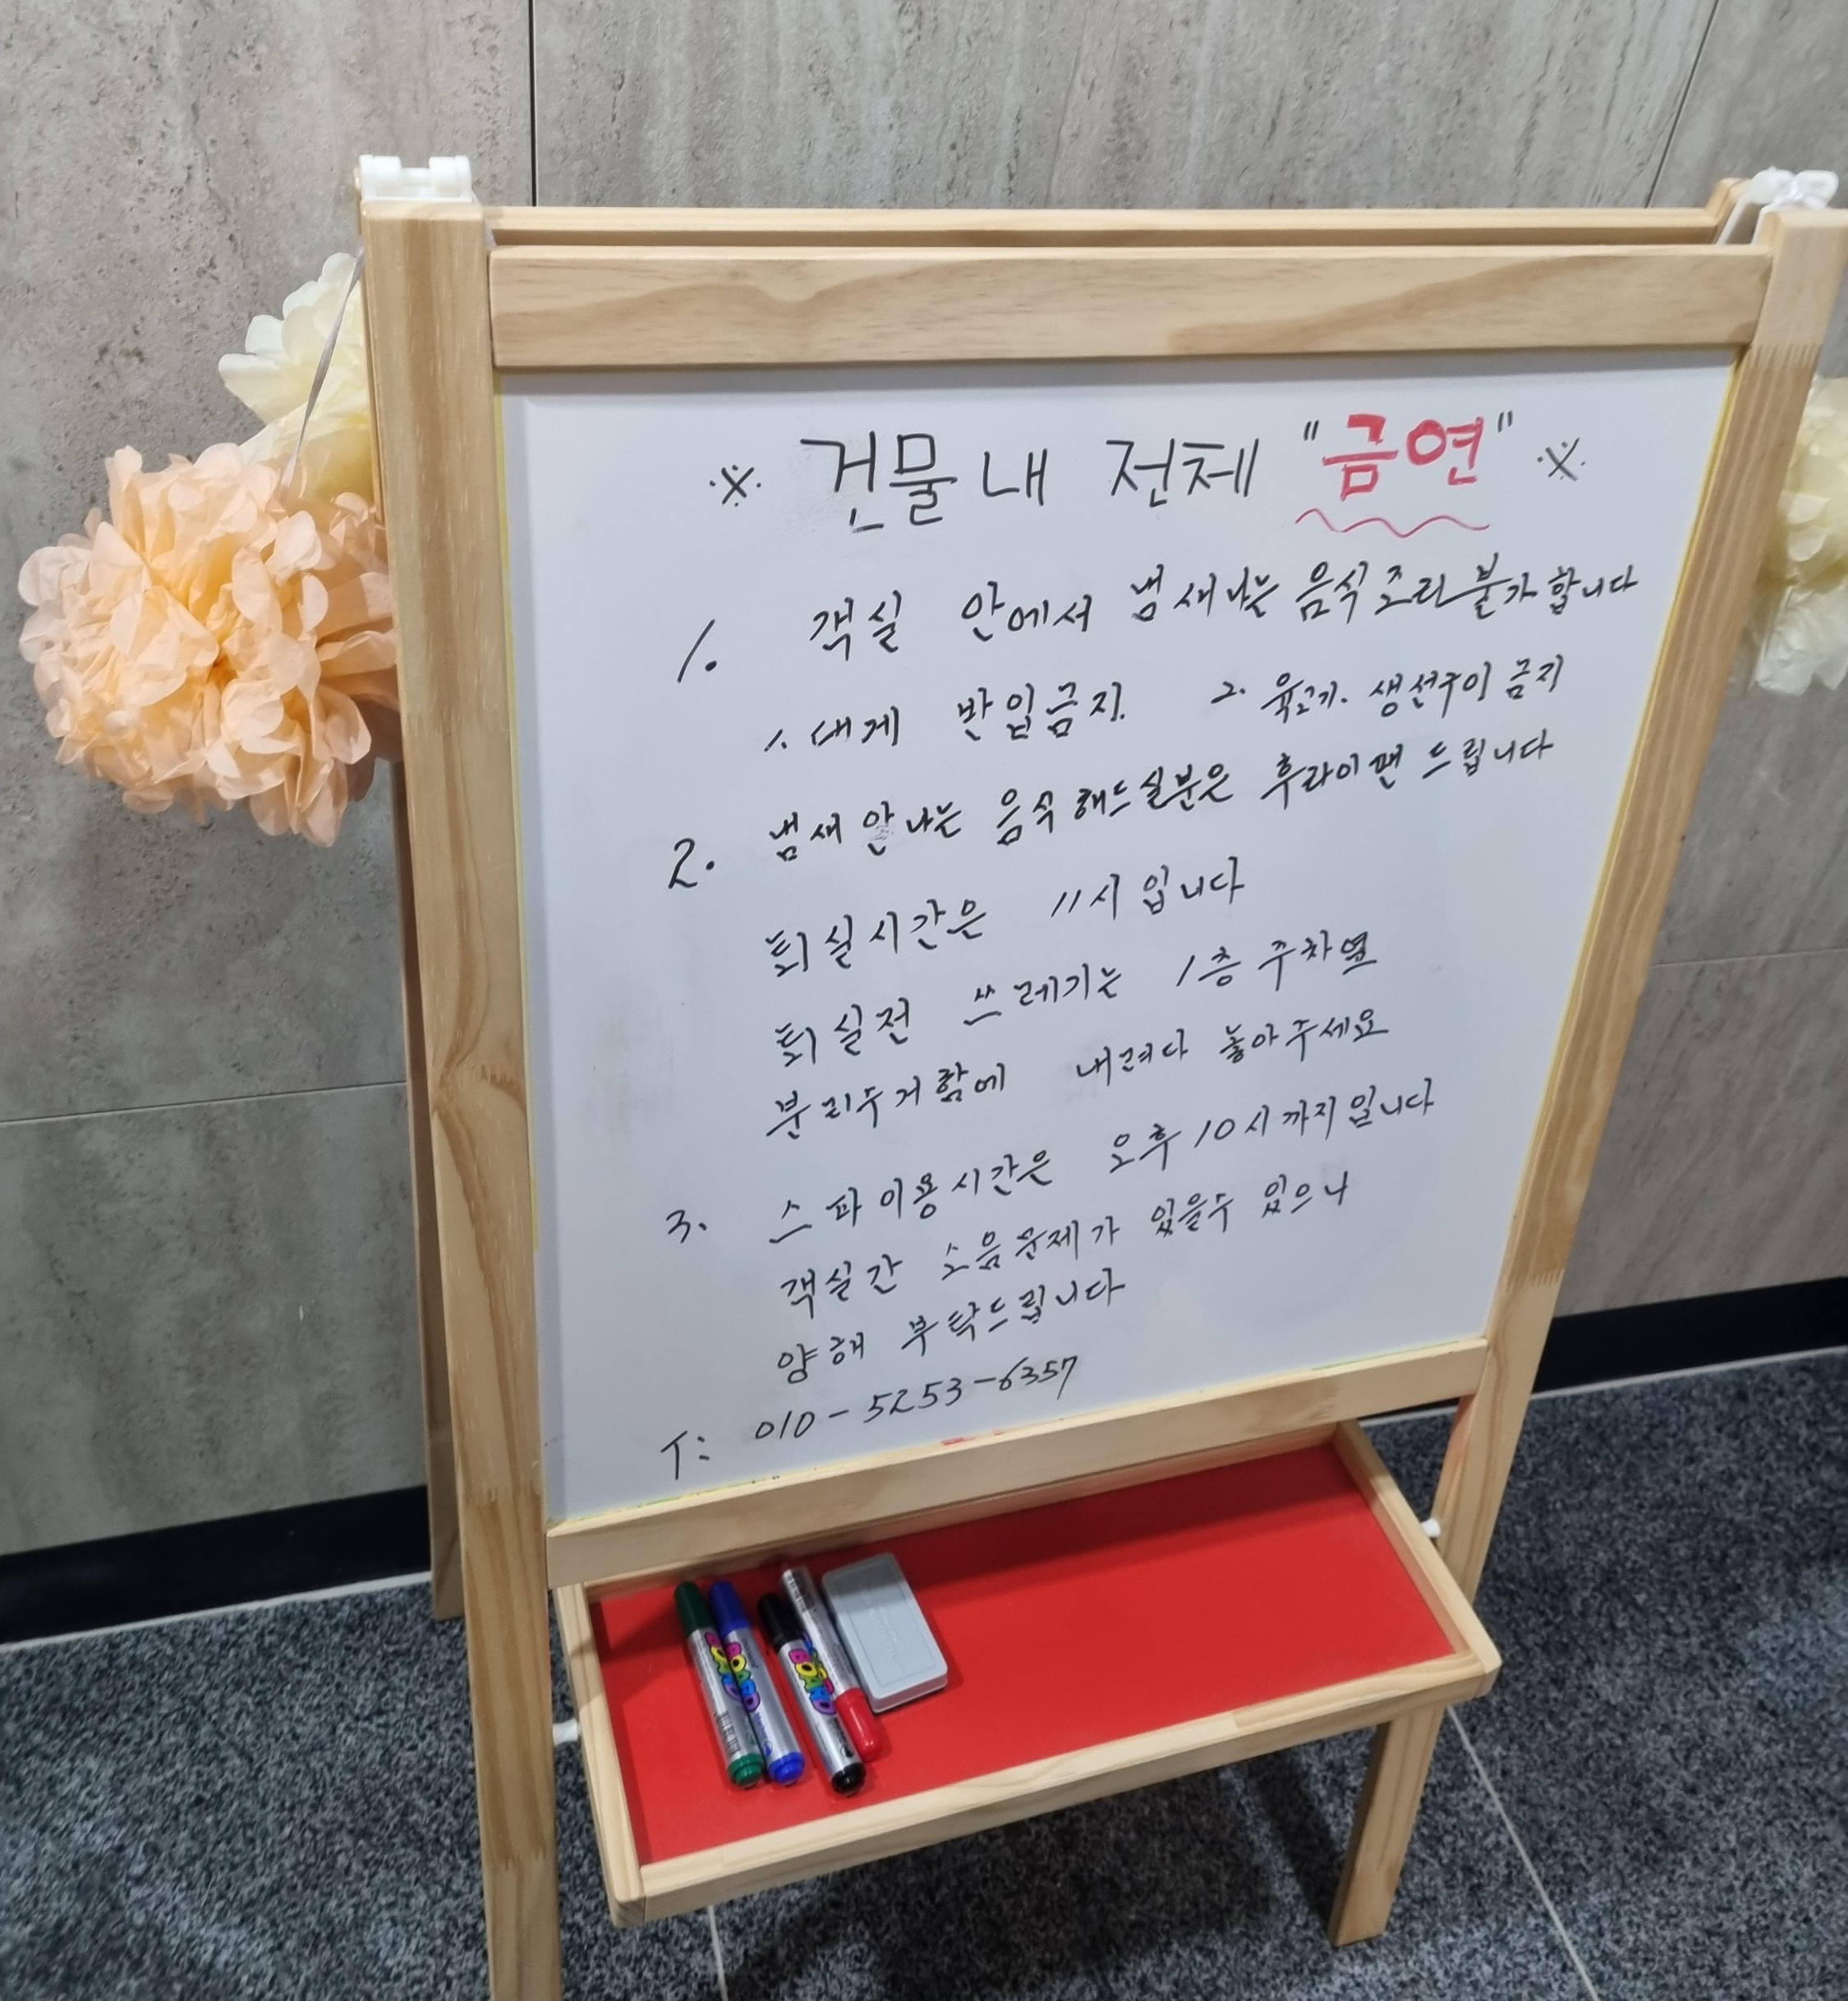 ※ 건물내 전체 "금연" ※
1. 객실 안에서 냄새나는 음식조리불가합니다
1. 대게 반입금지. 2. 육고기. 생선구이 금지
2. 냄새 안나는 음식해드실분은 후라이팬 드립니다
퇴실시간은 11시 입니다
퇴실전 쓰레기는 1층 주차옆
분리수거함에 내려다 놓아주세요
3. 스파이용시간은 오후 10시까지입니다
객실간 소음문제가 있을수 있으니
양해 부탁드립니다
T: 010-5253-6357
BOARD
BOARD
BOARD